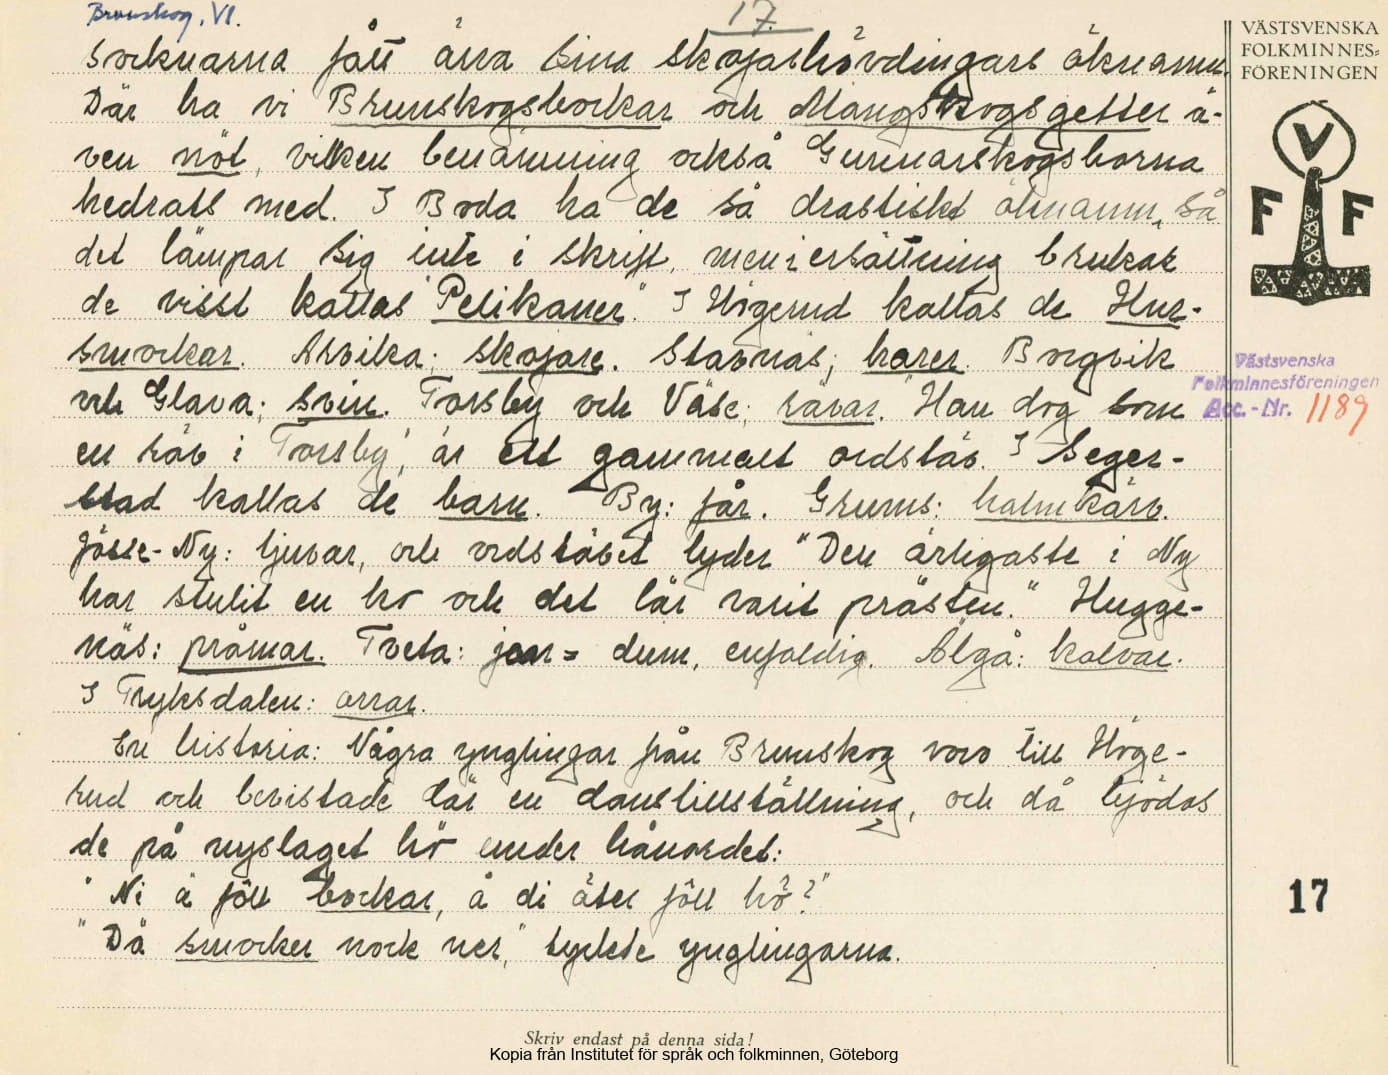 Brunskog, VI.
17.
VÄSTSVENSKA
FOLKMINNES=
FÖRENINGEN
V
F F
socknarna fått ärva sina skojarhövdingars öknamn.
Där ha vi Brunskogsbockar och Mangskogsgetter ä-
ven nöt, vilken benämning också Gunnarskogsborna
hedrats med. I Boda ha de så drastiskt öknamn, så
det lämpar sig inte i skrift, men i ersättning brukar
de visst kallas "Pelikaner". I Högerud kallas de Hur-
smockar. Arvika; skojare. Stavnäs; harer. Borgvik
och Glava; svin. Torsby och Väse; rävar. "Han dog som
en räv i Torsby", är ett gammalt ordstäv. I Seger-
stad kallas de barn. By: får. Grums: halmkärv.
Jösse-Ny: tjuvar, och ordstävet lyder "Den ärligaste i Ny
har stulit en ko och det lär varit prästen." Hugge-
näs: pråmar. Tveta: jon = dum, enfaldig. Älgå: kalvar.
I Fryksdalen: orrar.
En historia: Några ynglingar från Brunskog voro till Höge-
rud och bevistade där en danstillställning, och då bjödos
de på nyslaget hö under hånordet:
"Ni ä föll bockar, å di äter föll hö?"
"Dä smocker nock ner," tyckte ynglingarna.
Västsvenska
Folkminnesföreningen
Acc.-Nr. 1189
17
Skriv endast på denna sida!
Kopia från Institutet för språk och folkminnen, Göteborg